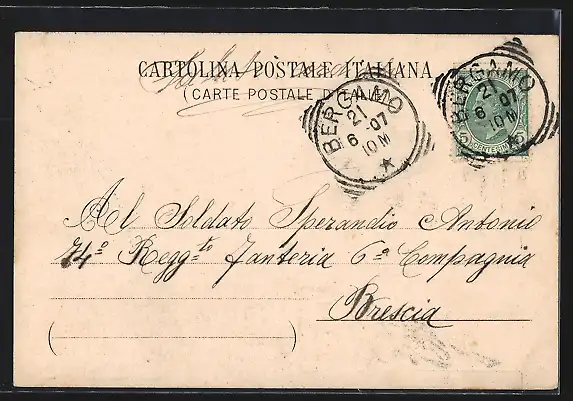 CARTOLINA POSTALE ITALIANA
(CARTE POSTALE D'ITALIE)
BERGAMO
21
6 07
10 M
BERGAMO
21
6 07
10 M
5 CENTESIMI 5
Al Soldato Sperandio Antonio
74º Reggto Fanteria 6a Compagnia
Brescia